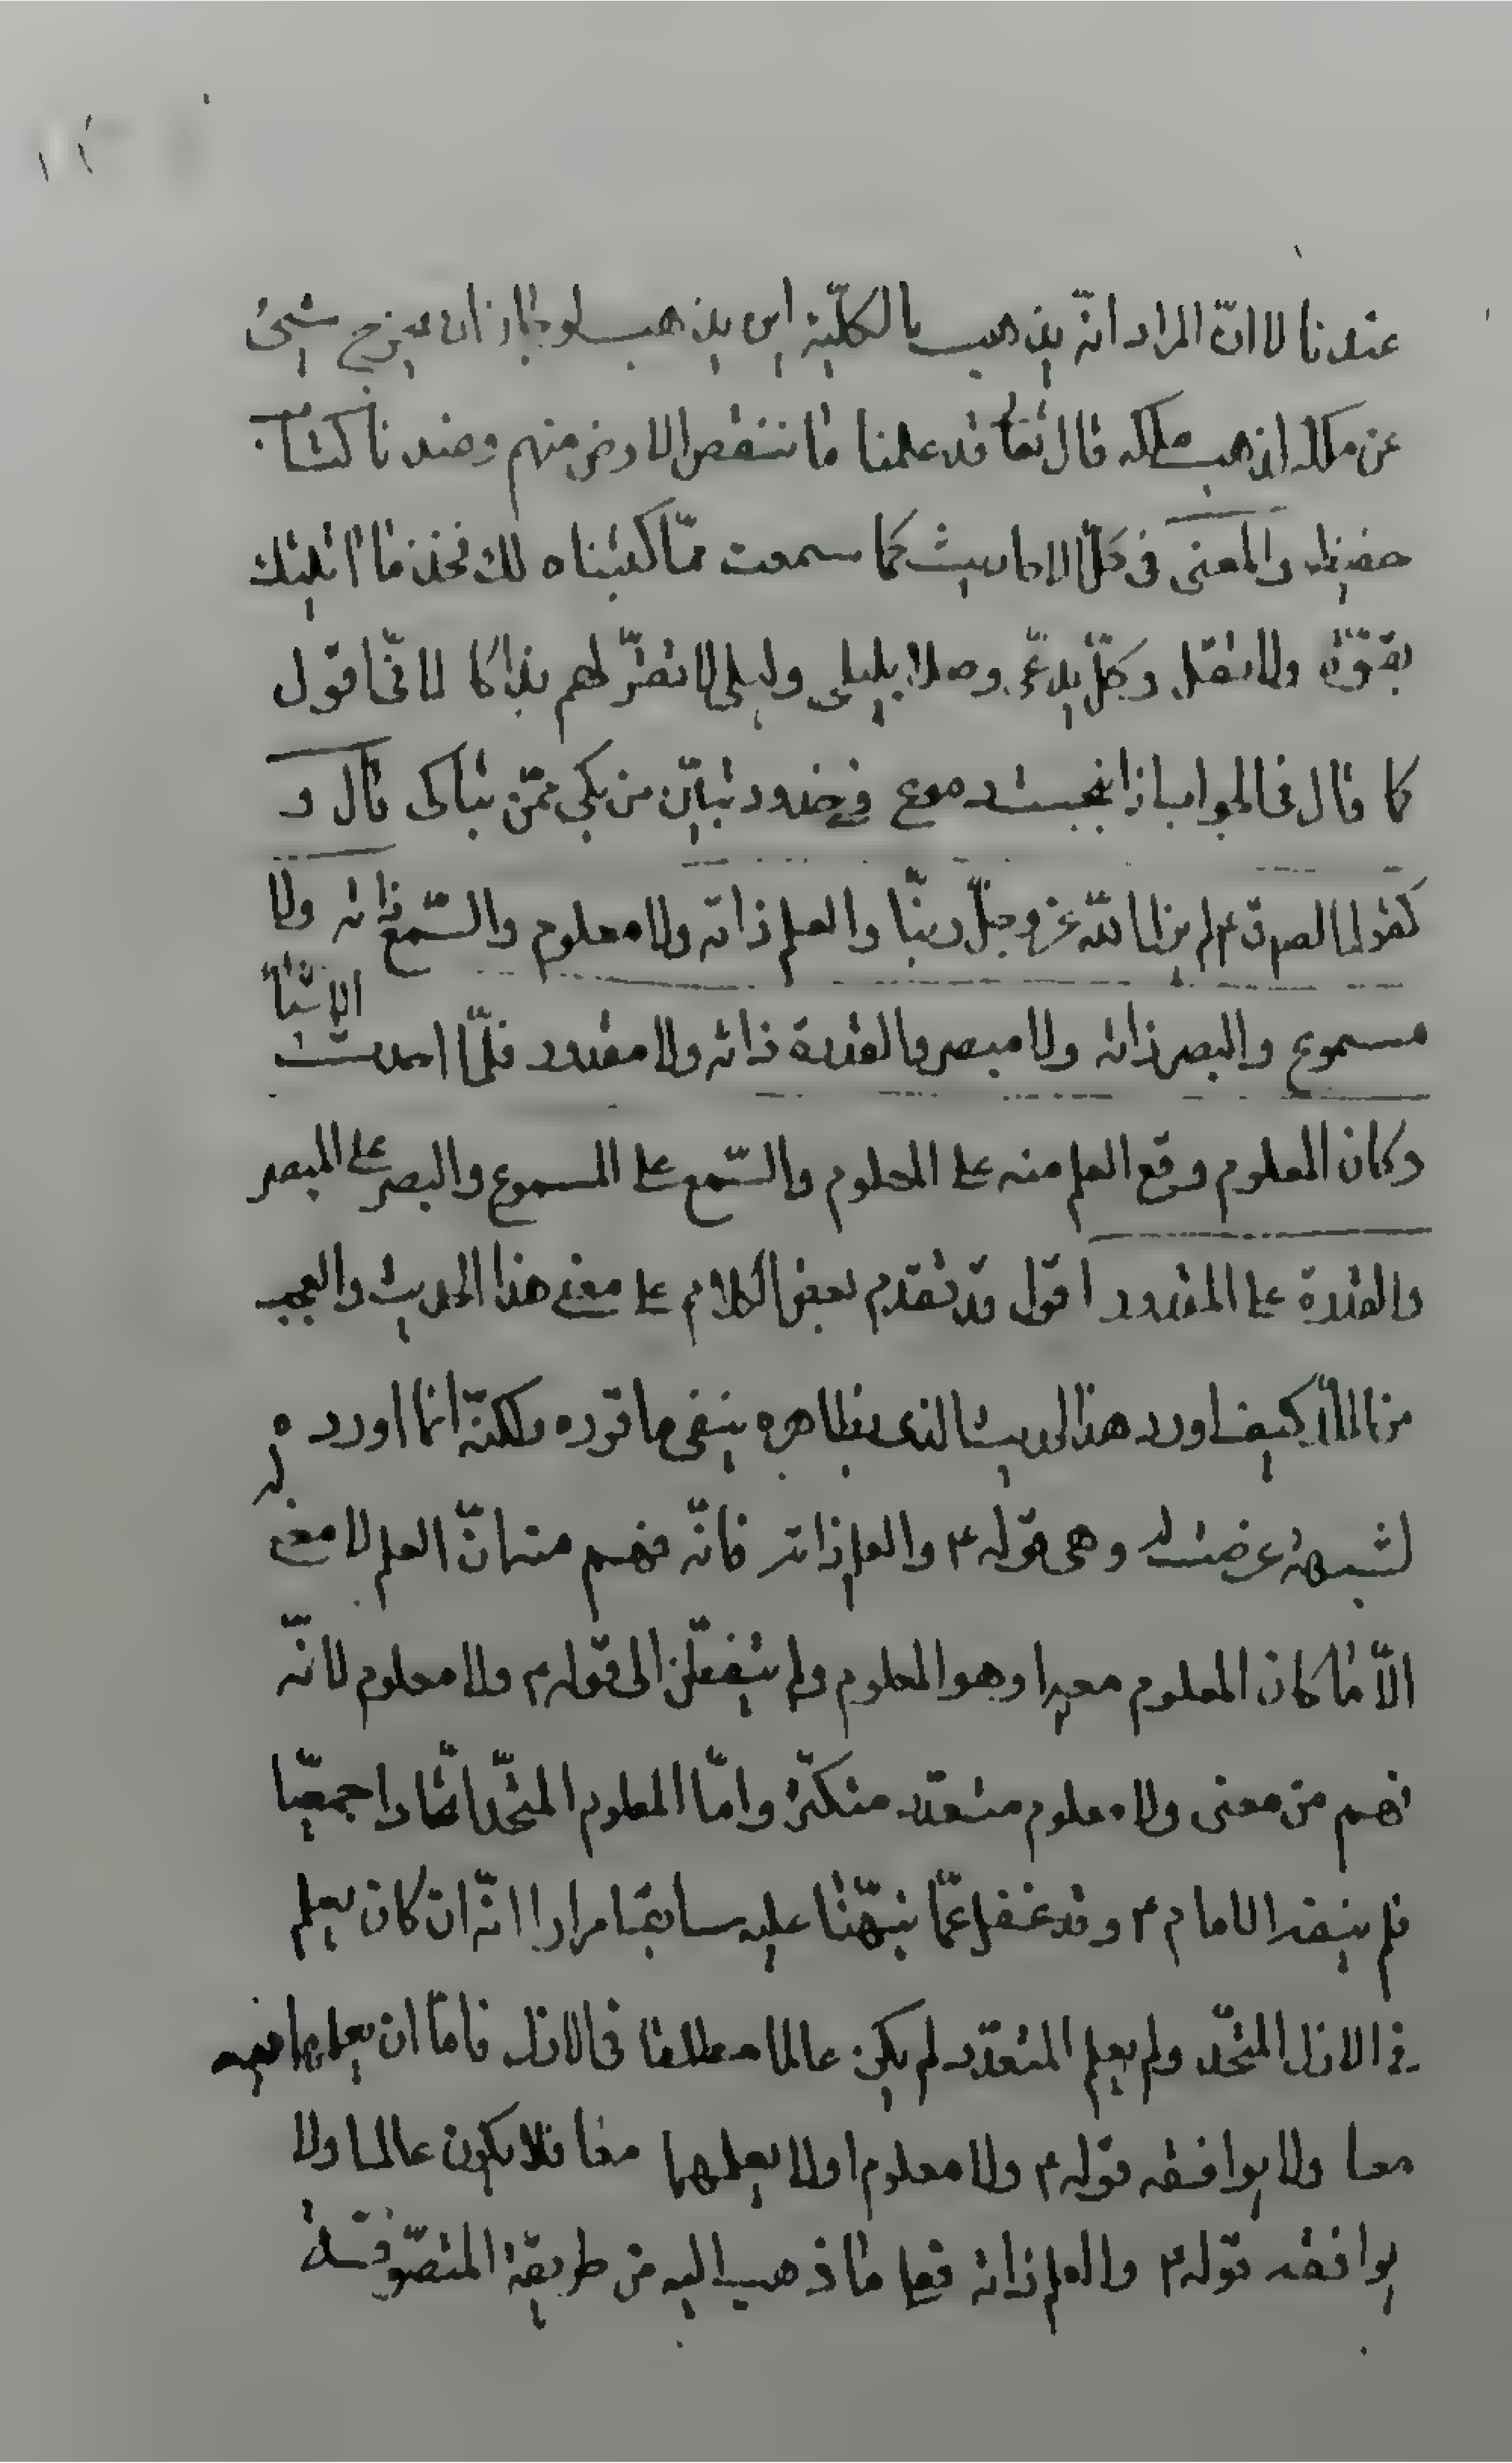 عندنا لا انّ المراد انّه يذهب بالكلّية اين يذهب لو جاز ان يخرج شيئ
عن ملكه لذهب ملكه قال تعا قد علمنا ما تنقص الارض منهم وعندنا كتاب
حفيظ والمعنى فى كلّ الاحاديث كما سمعت ممّا كتبناه لك فخذ ما اتيتك
بقوّة ولا تقل وكلّ يدّعى وصلا بليلى وليلى لا تقرّ لهم بذاكا لانّى اقول
كما قال فى الجواب اذا انبجست دموع فى خدود تبيّن من بكى ممّن تباكى قال و
كقول الصادق ٤ لم يزل اللّه عز وجلّ ربنّا والعلم ذاته ولا معلوم والسّمع ذاته ولا
مسموع والبصر ذاته ولا مبصر والقدرة ذاته ولا مقدور فلمّا احدث الاشياء
وكان المعلوم وقع العلم منه على المعلوم والسّمع على المسموع والبصر على المبصر
والقدرة على المقدور اقول قد تقدّم بعض الكلام على معنى هذا الحديث والعجب
من الملّا كيف اورد هذا الحديث الذى بظاهره ينفى ما قرّره ولكنّه انما اورده
لشبهة عرضت له وهى قوله ٤ والعلم ذاته فانّه فهم منه انّ العلم لا معنى له
الّا ما كان المعلوم معه او هو المعلوم ولم يتفطّن الى قوله ٤ ولا معلوم لانّه
فهم من معنى ولا معلوم متعدّد متكثّر وامّا المعلوم المتّحد اتّحادا جمعيّا
فلم ينفه الامام ٤ وقد غفل عمّا نبّهنا عليه سابقا مرارا انّه ان كان يعلم
فى الازل المتّحد ولم يعلم المتعدّد لم يكن عالما مطلقا فى الازل فامّا ان يعلم ما فيه
معا ولا يوافقه قوله ٤ ولا معلوم او لا يعلمهما معا فلا يكون عالما ولا
يوافقه قوله ٤ والعلم ذاته فعلى ما ذهب اليه من طريقة المتصوّفة